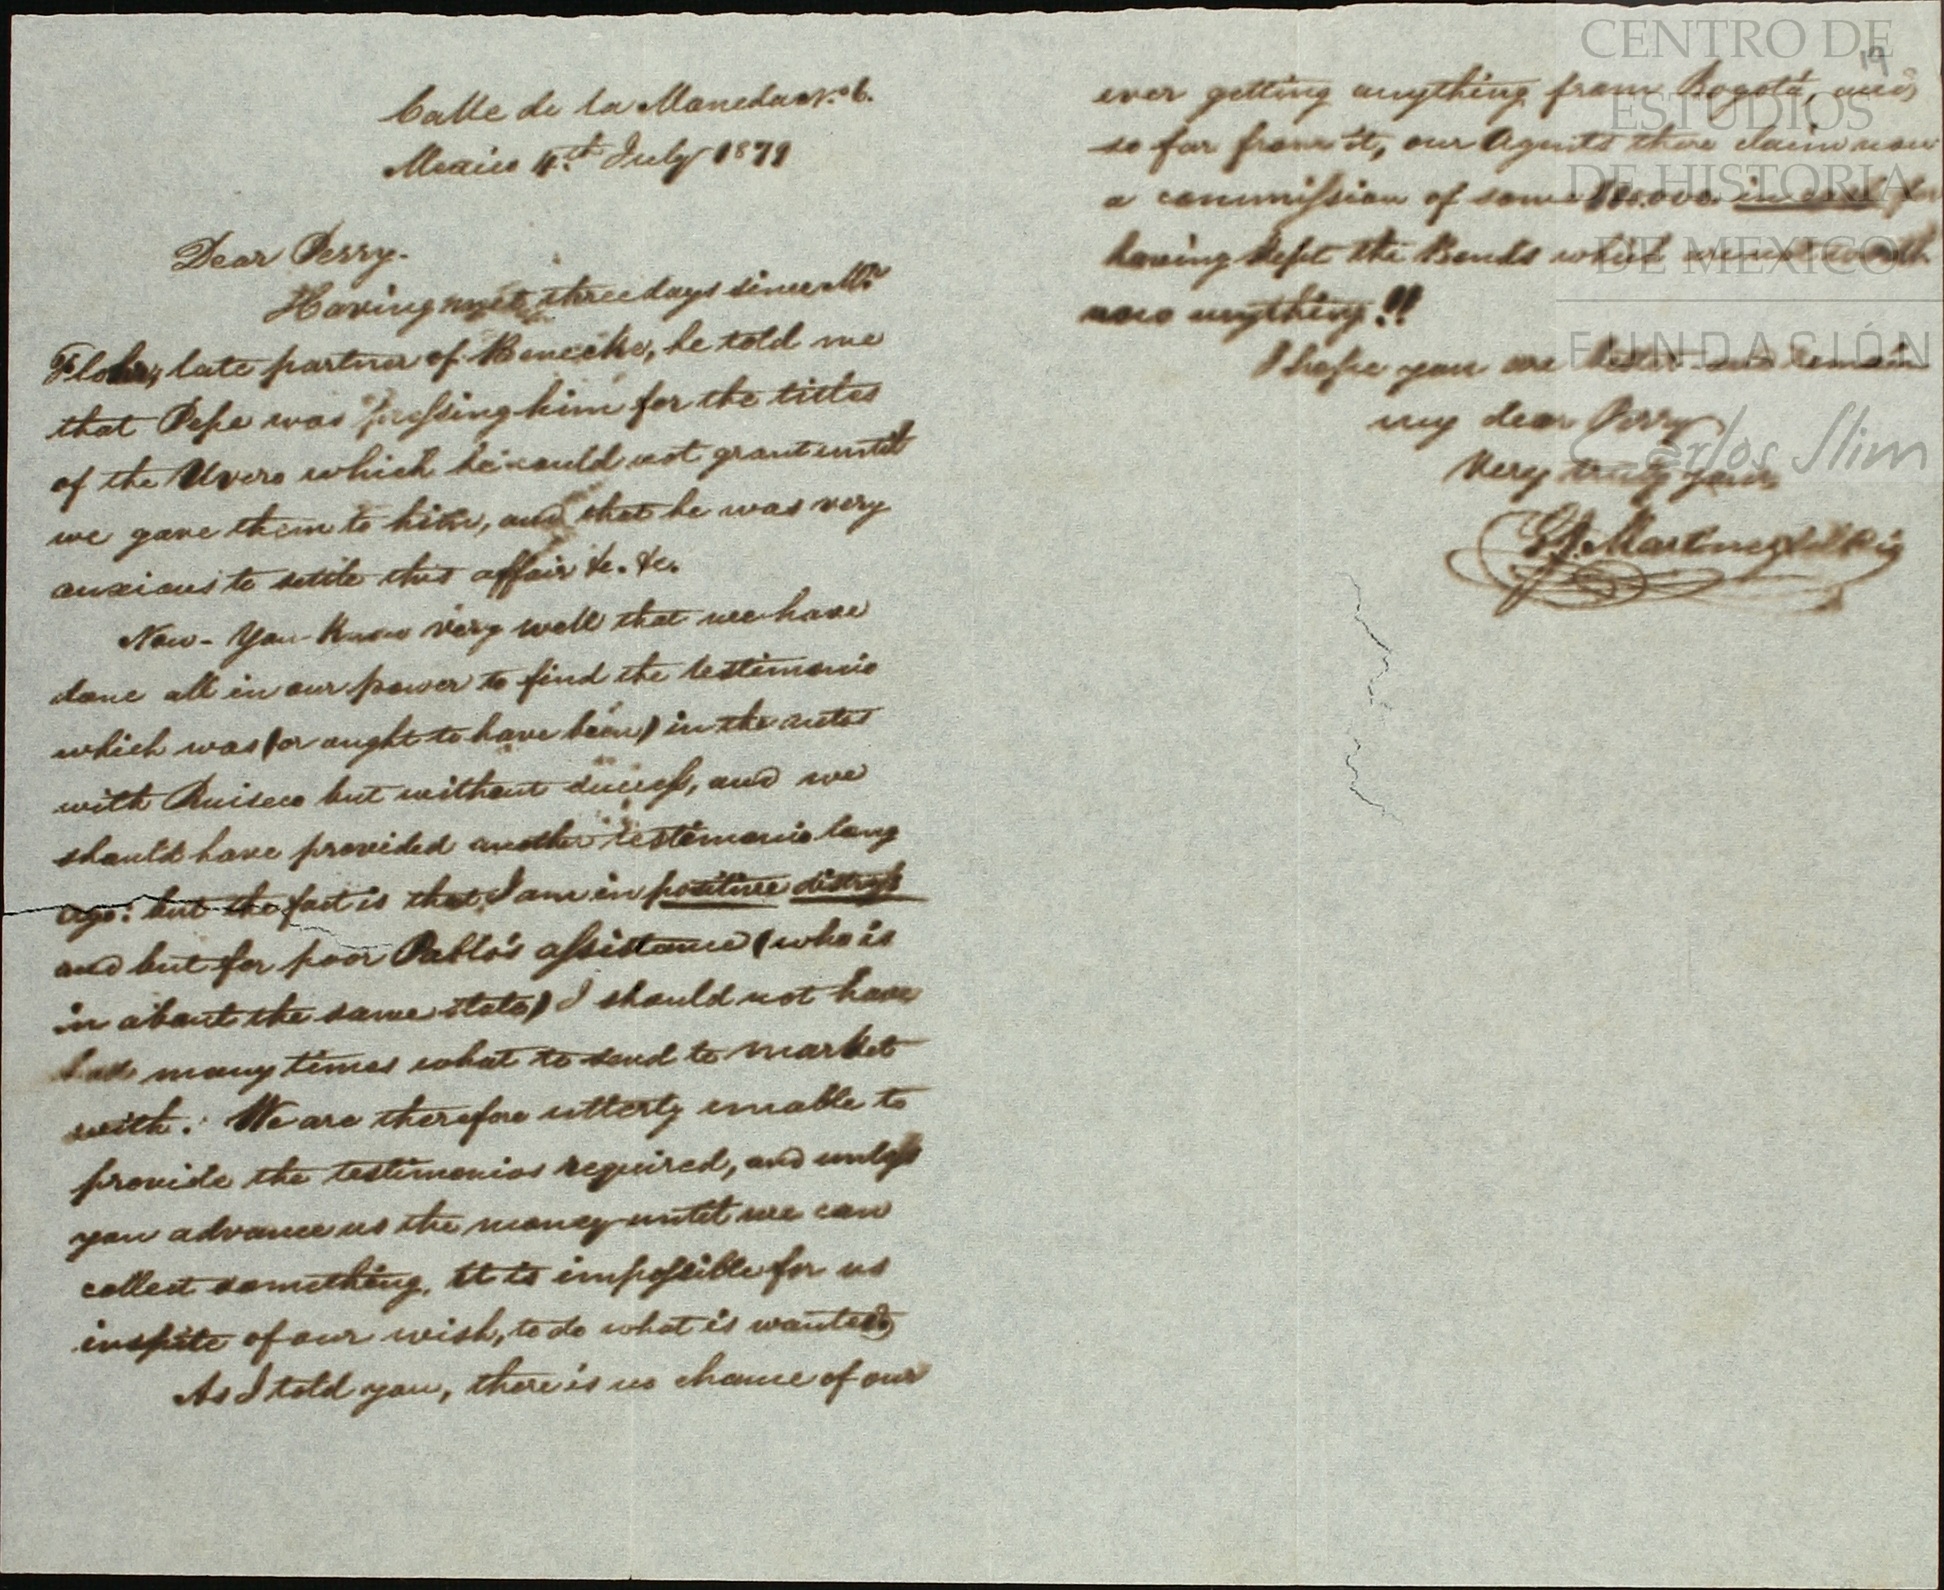 Calle de la Moneda Nº 6.
Mexico 4th July 1879
Dear Perry.
Having met three days since Mr
Flohr, late partner of Benecke, he told me
that Pepe was pressing him for the titles
of the Uvero which he could not grant until
we gave them to him, and that he was very
anxious to settle this affair &c. &c.
Now - You know very well that we have
done all in our power to find the testimonio
which was (or ought to have been) in the autos
with but without success, and we
should have provided another testimonio long
ago: but the fact is that I am in positive distress
and but for poor Pablo's assistance (who is
in about the same state) I should not have
had many times what to send to market
with. We are therefore utterly unable to
provide the testimonios required, and unless
you advance us the money until we can
collect something, it is impossible for us
inspite of our wish, to do what is wanted
As I told you, there is no chance of our
19
ever getting anything from Bogotá, and
so far from it, our Agents there claim now
a commission of some in for
having kept the Bonds which are not worth
now anything!!
I hope you are better and remain
my dear Perry
Very truly yours
CENTRO DE
ESTUDIOS
DE HISTORIA
DE MEXICO
FUNDACIÓN
Carlos Slim